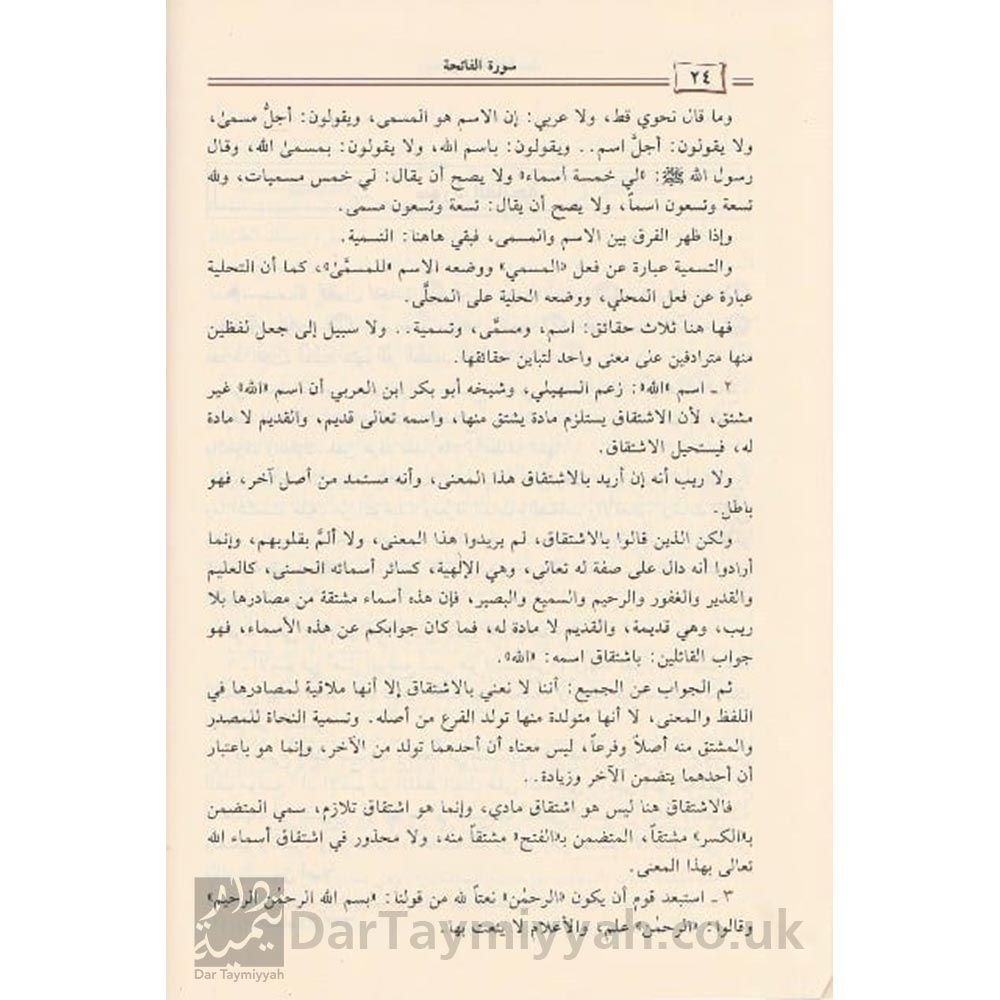 سورة الفاتحة
٢٤
وما قال نحوي قط، ولا عربي: إن الاسم هو المسمى، ويقولون: أجلٌ مسمىٰ،
ولا يقولون: أجلُ اسم.. ويقولون: باسم الله، ولا يقولون: بمسمىٰ الله، وقال
رسول الله ﷺ: «لي خمسة أسماء» ولا يصح أن يقال: لي خمس مسميات، ولله
تسعة وتسعون اسماً، ولا يصح أن يقال: تسعة وتسعون مسمى.
وإذا ظهر الفرق بين الاسم والمسمى، فبقي هاهنا: التسمية.
والتسمية عبارة عن فعل «المسمي» ووضعه الاسم «للمسمَّىٰ»، كما أن التحلية
عبارة عن فعل المحلي، ووضعه الحلية على المحلَّى.
فها هنا ثلاث حقائق: اسم، ومسمَّى، وتسمية.. ولا سبيل إلى جعل لفظين
منها مترادفين على معنى واحد لتباين حقائقها.
٢ ـ اسم «الله»: زعم السهيلي، وشيخه أبو بكر ابن العربي أن اسم «الله» غير
مشتق، لأن الاشتقاق يستلزم مادة يشتق منها، واسمه تعالى قديم، والقديم لا مادة
له، فيستحيل الاشتقاق.
ولا ريب أنه إن أريد بالاشتقاق هذا المعنى، وأنه مستمد من أصل آخر، فهو
باطل.
ولكن الذين قالوا بالاشتقاق، لم يريدوا هذا المعنى، ولا ألمَّ بقلوبهم، وإنما
أرادوا أنه دال على صفة له تعالى، وهي الإلهية، كسائر أسمائه الحسنى، كالعليم
والقدير والغفور والرحيم والسميع والبصير، فإن هذه أسماء مشتقة من مصادرها بلا
ريب، وهي قديمة، والقديم لا مادة له، فما كان جوابكم عن هذه الأسماء، فهو
جواب القائلين: باشتقاق اسمه: «الله».
ثم الجواب عن الجميع: أننا لا نعني بالاشتقاق إلا أنها ملاقية لمصادرها في
اللفظ والمعنى، لا أنها متولدة منها تولد الفرع من أصله. وتسمية النحاة للمصدر
والمشتق منه أصلاً وفرعاً، ليس معناه أن أحدهما تولد من الآخر، وإنما هو باعتبار
أن أحدهما يتضمن الآخر وزيادة..
فالاشتقاق هنا ليس هو اشتقاق مادي، وإنما هو اشتقاق تلازم، سمي المتضمن
بـ«الكسر» مشتقاً، المتضمن بـ«الفتح» مشتقاً منه، ولا محذور في اشتقاق أسماء الله
تعالى بهذا المعنى.
٣ ـ استبعد قوم أن يكون «الرحمٰن» نعتاً لله من قولنا: «بسم الله الرحمٰن الرحيم»
وقالوا: «الرحمٰن» علم، والأعلام لا ينعت بها.
Dar Taymiyyah
DarTaymiyyah.co.uk